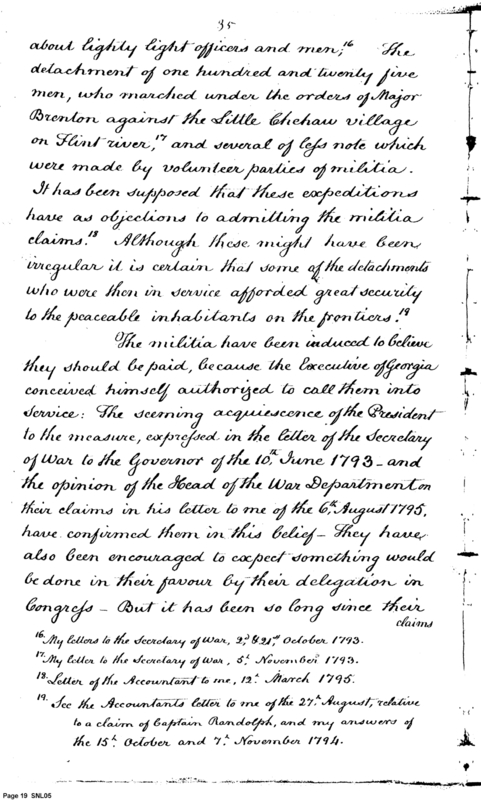 35
about Eighty Eight officers and men;16 The
detachment of one hundred and twenty five
men, who marched under the orders of Major
Brenton against the Little Chehaw village
on Flint river;17 and several of less note which
were made by volunteer parties of militia.
It has been supposed that these expeditions
have as objections to admitting the militia
claims.18 Although these might have been
irregular it is certain that some of the detachments
who were then in service afforded great security
to the peaceable inhabitants on the frontiers.19
The militia have been induced to believe
they should be paid, because the Executive of Georgia
conceived himself authorized to call them into
Service: The seeming acquiescence of the President
to the measure, expressed in the letter of the Secretary
of War to the Governor of the 10th June 1793 - and
the opinion of the Head of the War Department on
their claims in his letter to me of the 6th August 1795,
have confirmed them in this belief - They have
also been encouraged to expect something would
be done in their favour by their delegation in
Congress - But it has been so long since their
claims
16. My letters to the Secretary of War, 2d & 21st October 1793.
17. My letter to the Secretary of War, 5th November 1793.
18. Letter of the Accountant to me, 12th March 1795.
19. See the Accountants letter to me of the 27th August, relative
to a claim of Captain Randolph, and my answers of
the 15th October and 7th November 1794.
Page 19 SNL05